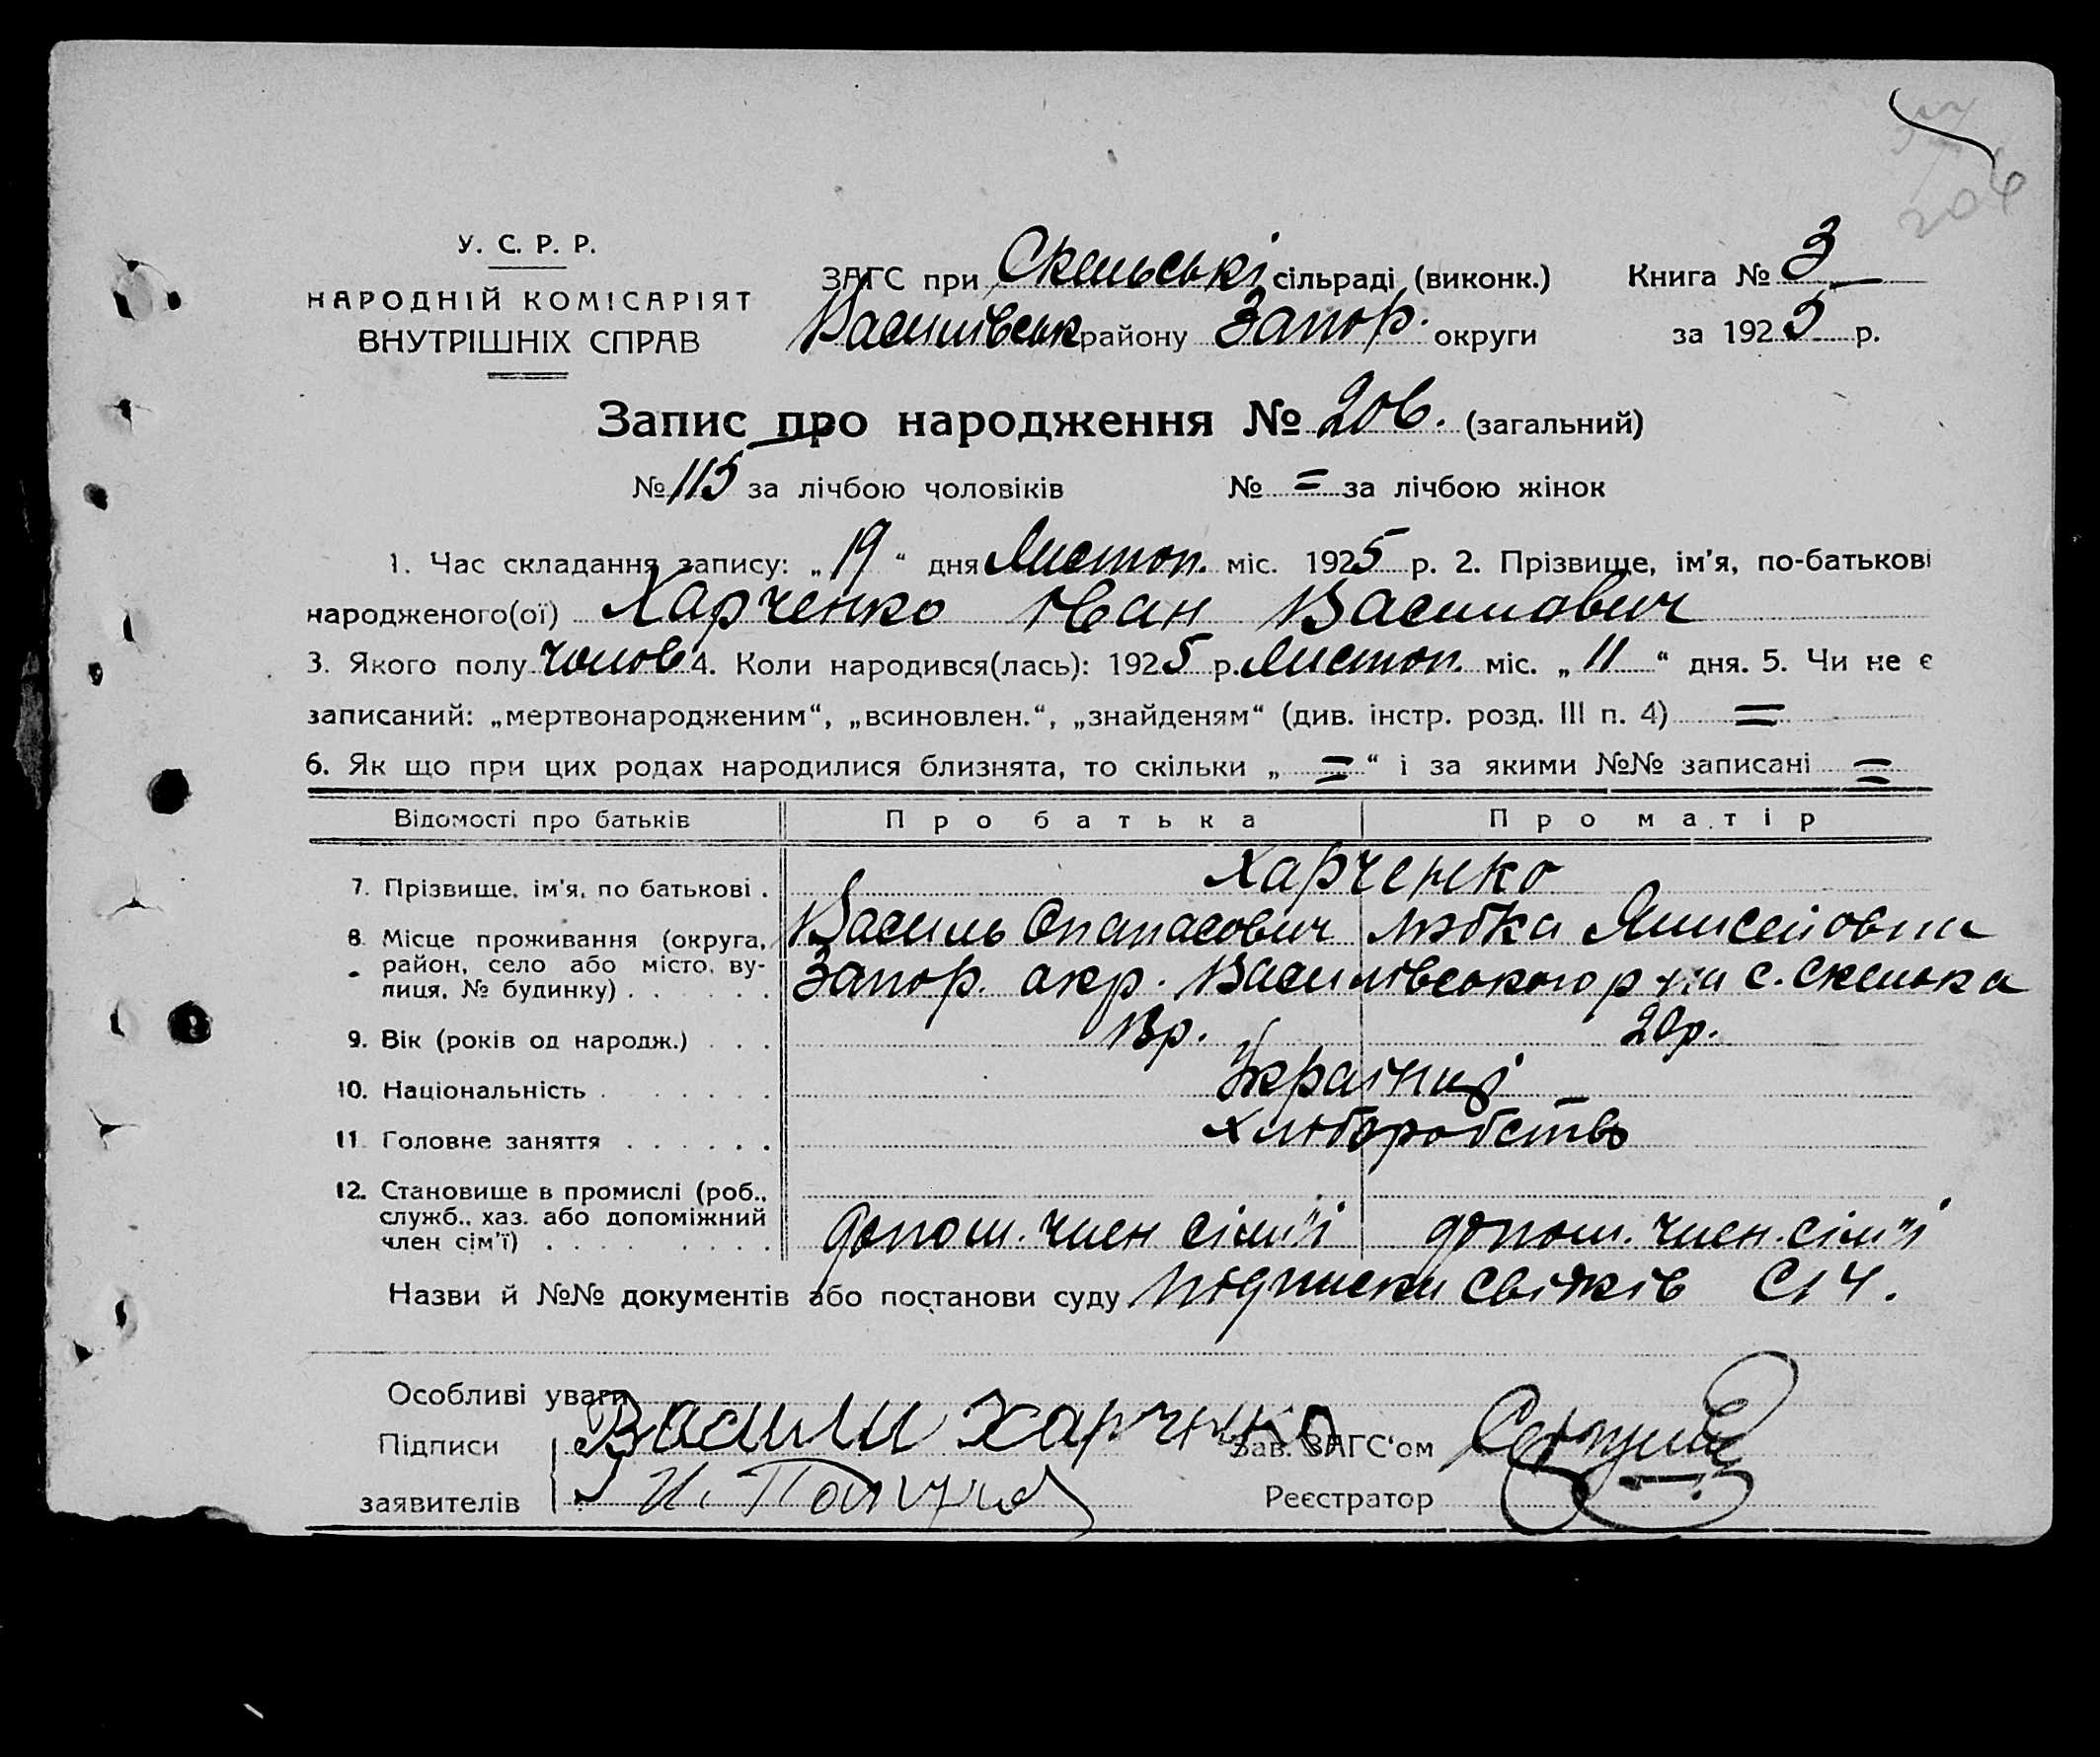 206
У. С. Р. Р.
НАРОДНІЙ КОМІСАРІЯТ
ВНУТРІШНІХ СПРАВ
ЗАГС при Скельські сільраді (виконк.) Книга № 3
Василівськ району Запор. округи за 1925 р.
Запис про народження № 206. (загальний)
№ 115 за лічбою чоловіків № = за лічбою жінок
1. Час складання запису: „19“ дня Листоп. міс. 1925 р. 2. Прізвище, ім’я, по-батькові
народженого(ої) Харченко Іван Василович
3. Якого полу чолов 4. Коли народився(лась): 1925 р. Листоп. міс. „11“ дня. 5. Чи не є
записаний: „мертвонародженим“, „всиновлен.“, „знайденям“ (див. інстр. розд. III п. 4) =
6. Як що при цих родах народилися близнята, то скільки „=“ і за якими №№ записані =
Відомості про батьків Про батька Про матір
7. Прізвище, ім’я, по батькові . Харченко
Василь Опанасович
8. Місце проживання (округа, район, село або місто, вулиця, № будинку) . Запор. окр. Василівського р-на с. Скелька
9. Вік (років од народж.) . . . 20р.
10. Національність . Українці
11. Головне заняття . Хліборобство
12. Становище в промислі (роб., служб., хаз. або допоміжний член сім’ї) . допом. член сім"ї допом. член. сім"ї
Назви й №№ документів або постанови суду Підписки свідків
Особливі уваги
Підписи Васили Харченко Зав. ЗАГС‘ом
заявителів И. Реєстратор